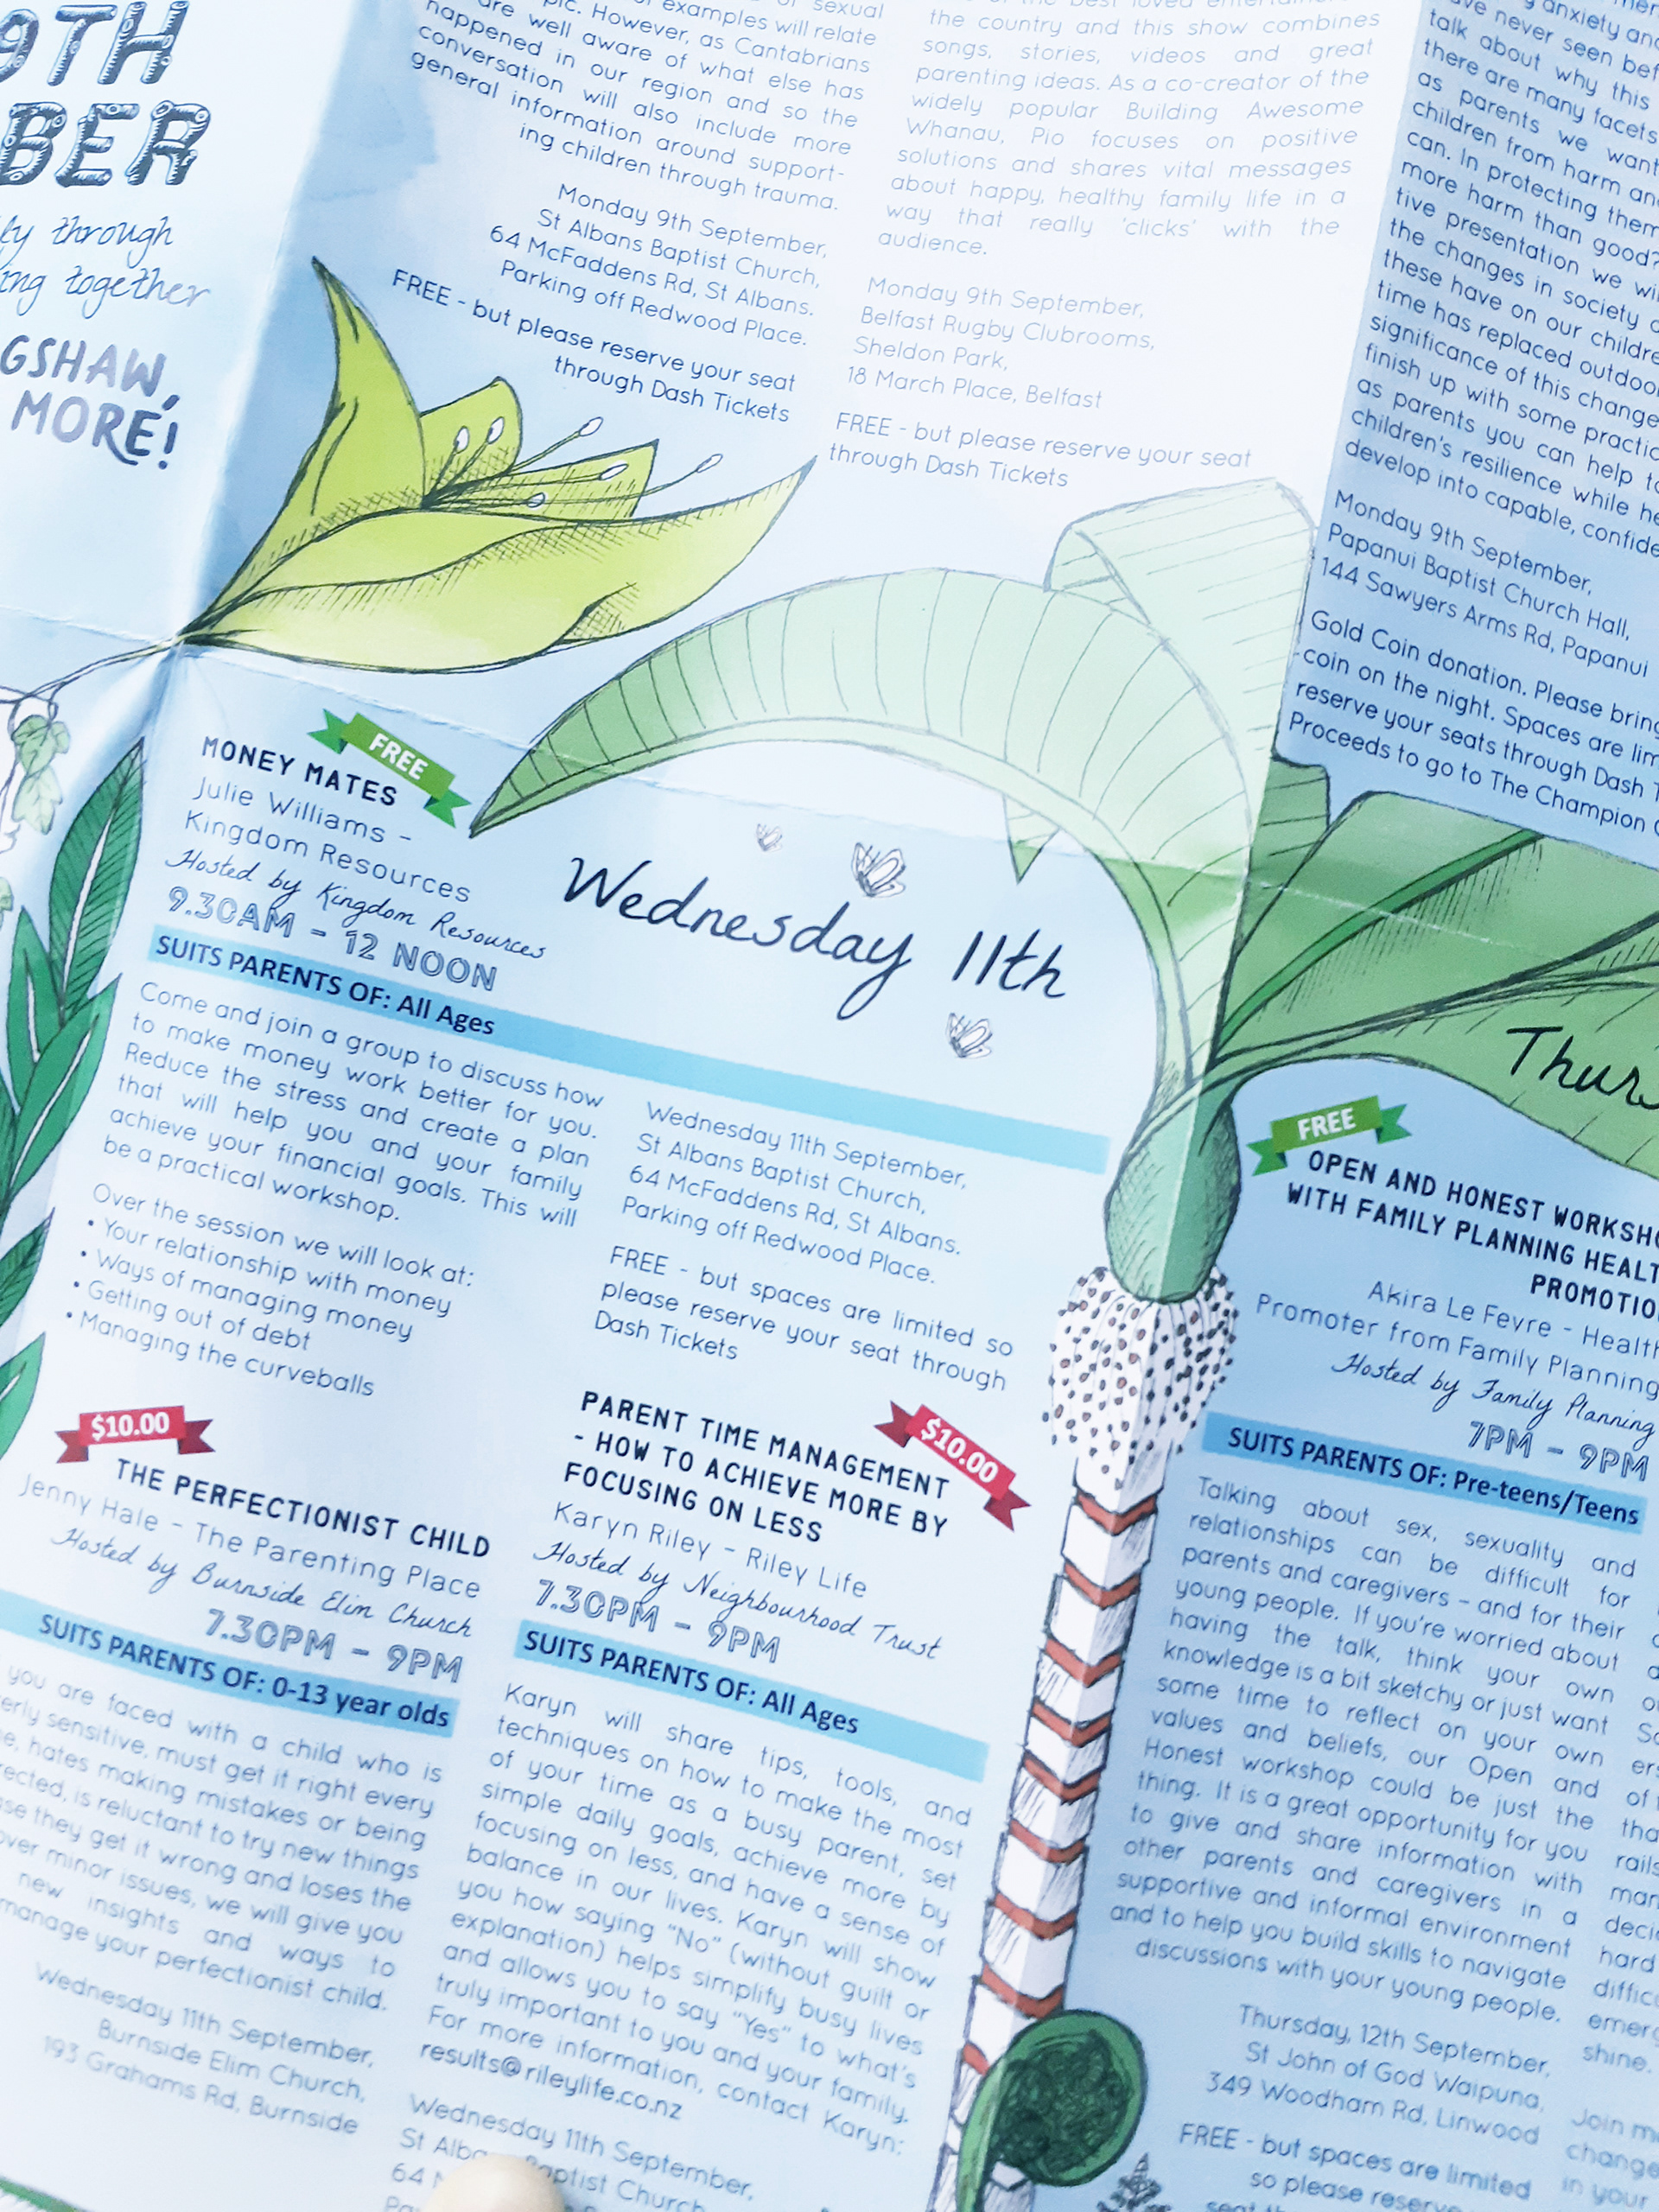 9TH
BER
ly through
ing together
GSHAW,
MORE!
of sexual
examples will relate
However, as Cantabrians
are well aware of what else has
happened in our region and so the
conversation will also include more
general information around support-
ing children through trauma.
Monday 9th September,
St Albans Baptist Church,
64 McFaddens Rd, St Albans.
Parking off Redwood Place.
FREE - but please reserve your seat
through Dash Tickets
the country and this show combines
songs, stories, videos and great
parenting ideas. As a co-creator of the
widely popular Building Awesome
Whanau, Pio focuses on positive
solutions and shares vital messages
about happy, healthy family life in a
way that really 'clicks' with the
audience.
Monday 9th September,
Belfast Rugby Clubrooms,
Sheldon Park,
18 March Place, Belfast
FREE - but please reserve your seat
through Dash Tickets
anxiety and
never seen bef
talk about why this
there are many facets
as parents we want
children from harm and
can. In protecting them
more harm than good?
tive presentation we wi
the changes in society
these have on our childre
time has replaced outdoo
significance of this change
finish up with some practic
as parents you can help to
children's resilience while he
develop into capable, confide
Monday 9th September,
Papanui Baptist Church Hall,
144 Sawyers Arms Rd, Papanui
Gold Coin donation. Please bring
coin on the night. Spaces are lim
reserve your seats through Dash T
Proceeds to go to The Champion C
MONEY MATES
FREE
Julie Williams –
Kingdom Resources
Hosted by Kingdom Resources
9.30AM – 12 NOON
SUITS PARENTS OF: All Ages
Wednesday 11th
Come and join a group to discuss how
to make money work better for you.
Reduce the stress and create a plan
that will help you and your family
achieve your financial goals. This will
be a practical workshop.
Over the session we will look at:
• Your relationship with money
• Ways of managing money
• Getting out of debt
• Managing the curveballs
Wednesday 11th September,
St Albans Baptist Church,
64 McFaddens Rd, St Albans.
Parking off Redwood Place.
FREE - but spaces are limited so
please reserve your seat through
Dash Tickets
$10.00
THE PERFECTIONIST CHILD
Jenny Hale – The Parenting Place
Hosted by Burnside Elim Church
7.30PM – 9PM
SUITS PARENTS OF: 0-13 year olds
you are faced with a child who is
erly sensitive, must get it right every
e, hates making mistakes or being
rected, is reluctant to try new things
se they get it wrong and loses the
over minor issues, we will give you
new insights and ways to
manage your perfectionist child.
Wednesday 11th September,
Burnside Elim Church,
193 Grahams Rd, Burnside
$10.00
PARENT TIME MANAGEMENT
- HOW TO ACHIEVE MORE BY
FOCUSING ON LESS
Karyn Riley – Riley Life
Hosted by Neighbourhood Trust
7.30PM – 9PM
SUITS PARENTS OF: All Ages
Karyn will share tips, tools, and
techniques on how to make the most
of your time as a busy parent, set
simple daily goals, achieve more by
focusing on less, and have a sense of
balance in our lives. Karyn will show
you how saying "No" (without guilt or
explanation) helps simplify busy lives
and allows you to say "Yes" to what's
truly important to you and your family.
For more information, contact Karyn:
results@rileylife.co.nz
Wednesday 11th September,
St Alba ptist Church
64
Thurs
FREE
OPEN AND HONEST WORKSHO
WITH FAMILY PLANNING HEALT
PROMOTIO
Akira Le Fevre – Health
Promoter from Family Planning
Hosted by Family Planning
7PM – 9PM
SUITS PARENTS OF: Pre-teens/Teens
Talking about sex, sexuality and
relationships can be difficult for
parents and caregivers – and for their
young people. If you're worried about
having the talk, think your own
knowledge is a bit sketchy or just want
some time to reflect on your own
values and beliefs, our Open and
Honest workshop could be just the
thing. It is a great opportunity for you
to give and share information with
other parents and caregivers in a
supportive and informal environment
and to help you build skills to navigate
discussions with your young people.
Thursday, 12th September,
St John of God Waipuna,
349 Woodham Rd, Linwood
FREE - but spaces are limited
so please reserve
seat
So
ers
of
tha
rails
man
decis
hard
diffic
emerg
shine.
Join m
change
in your